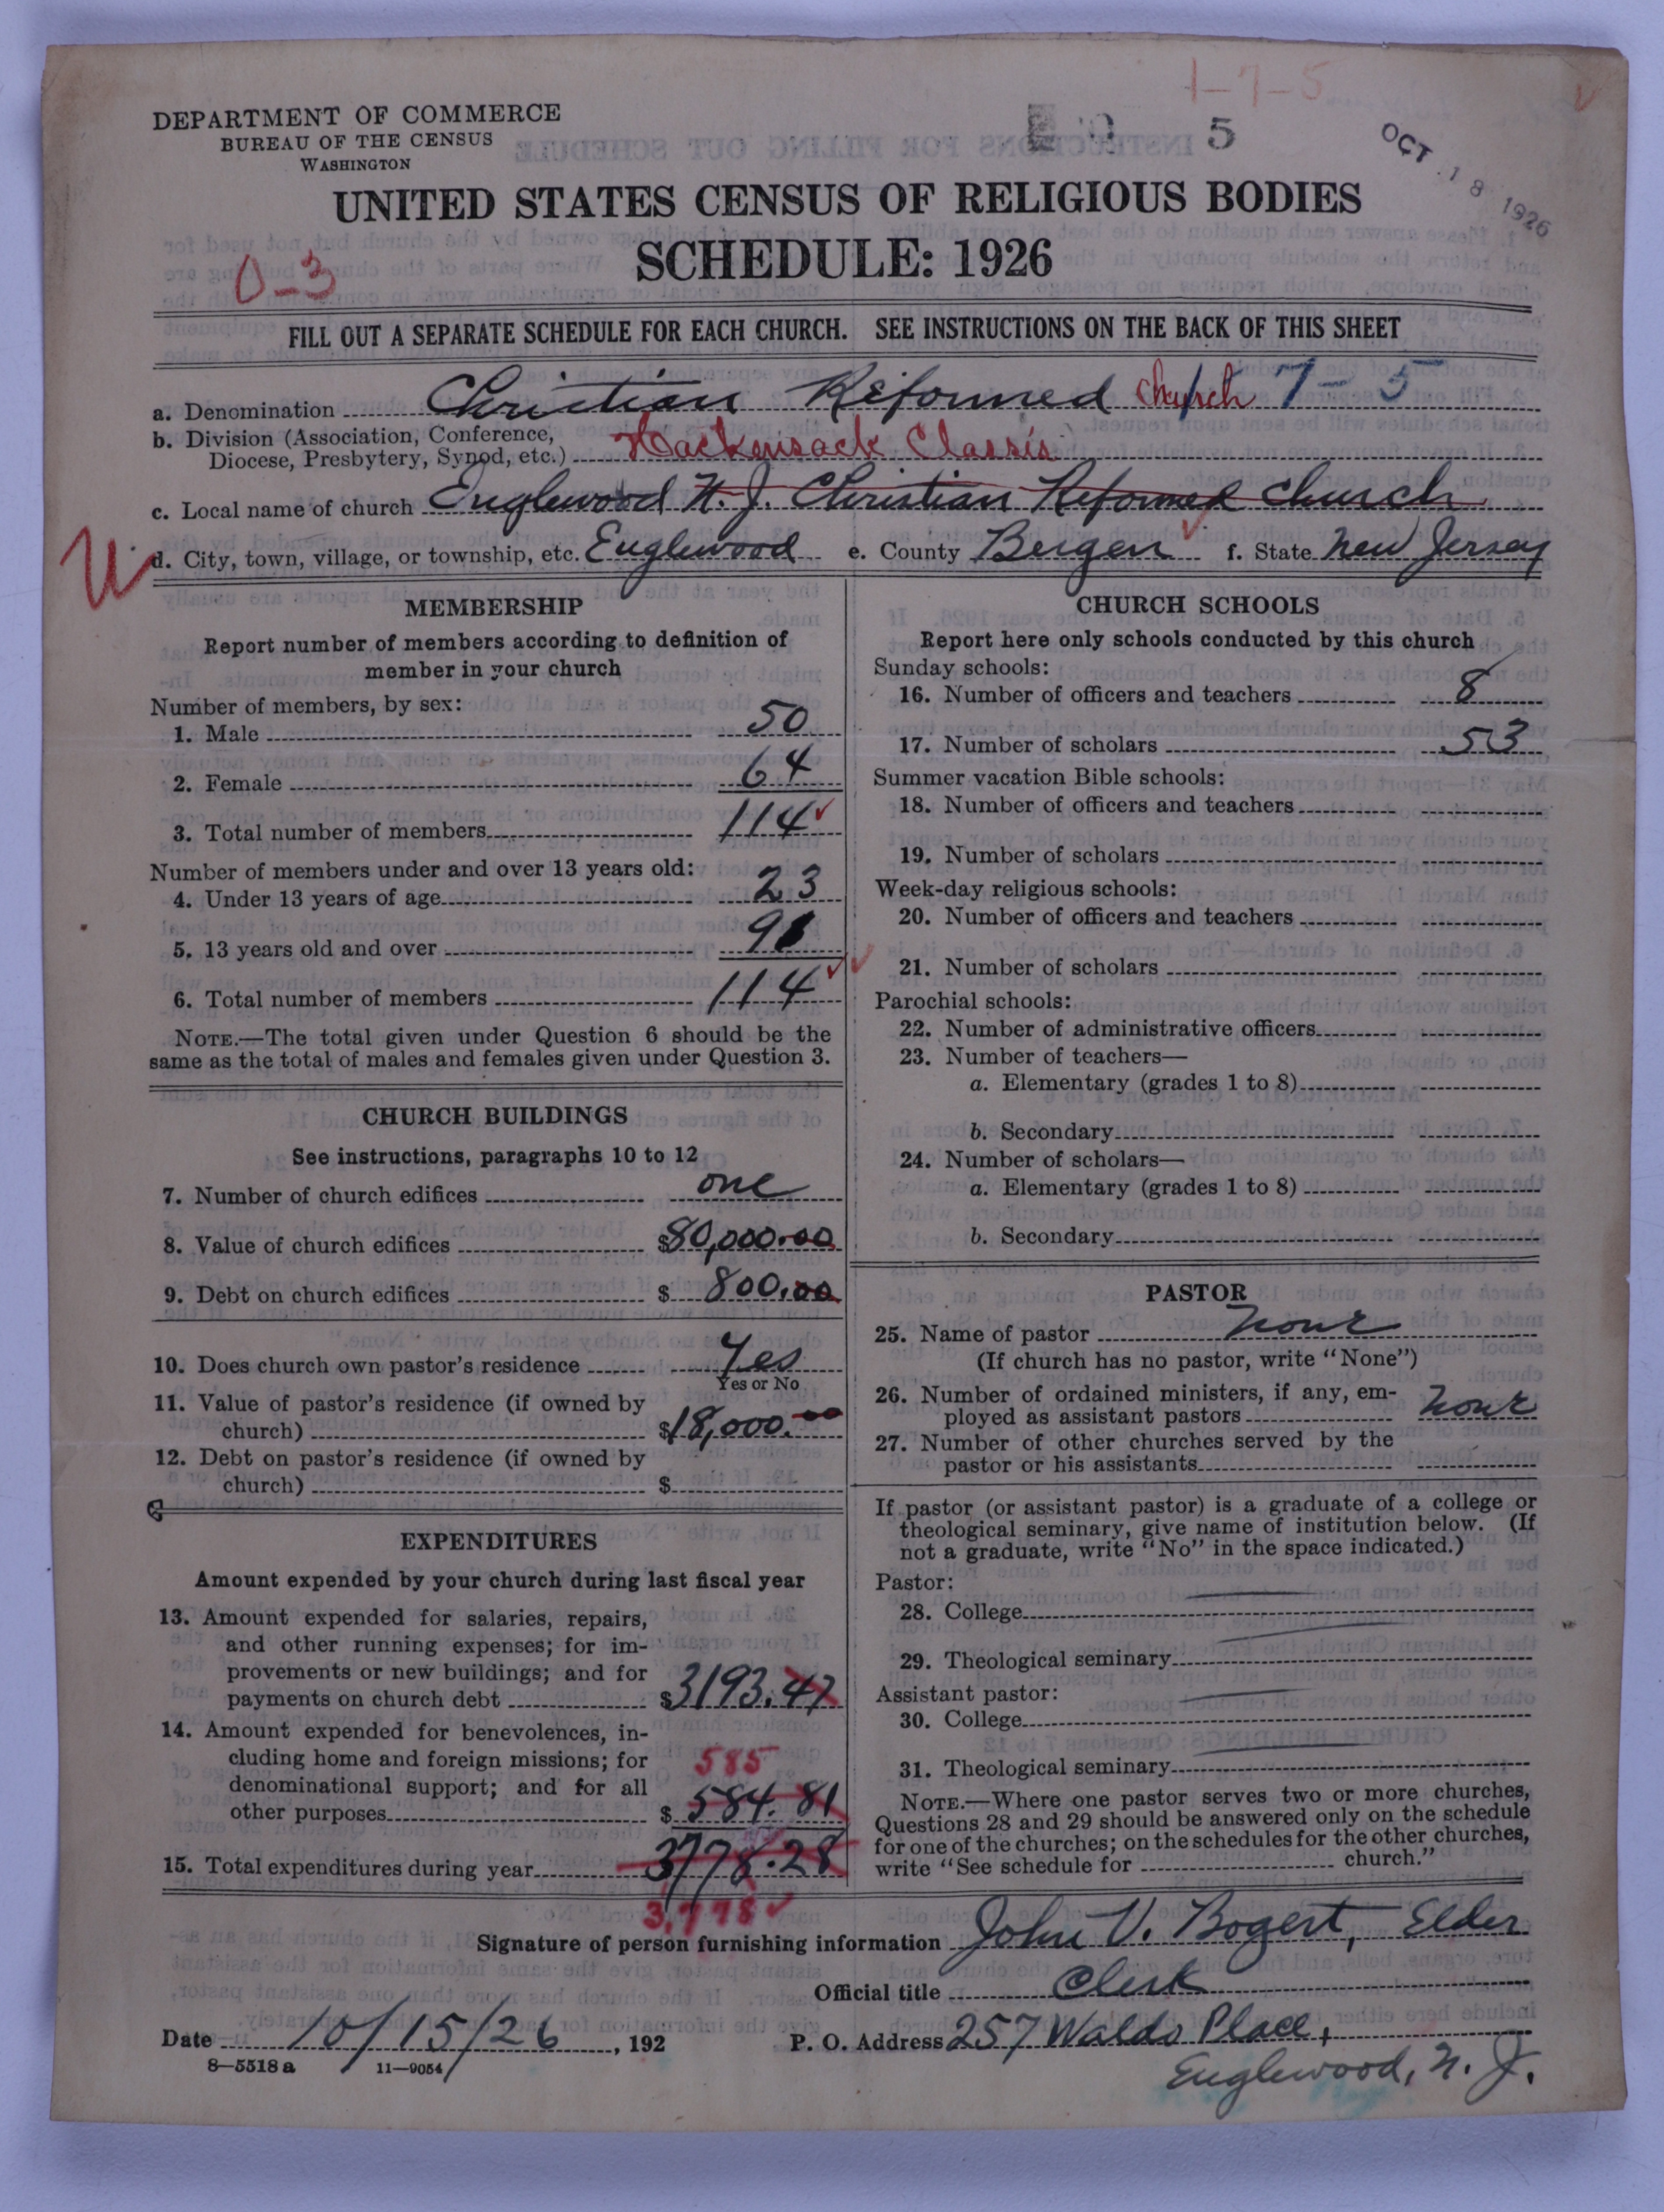 1-7-5
DEPARTMENT OF COMMERCE
BUREAU OF THE CENSUS
WASHINGTON
5
OCT 18 1926
UNITED STATES CENSUS OF RELIGIOUS BODIES
SCHEDULE: 1926
0-3
FILL OUT A SEPARATE SCHEDULE FOR EACH CHURCH. SEE INSTRUCTIONS ON THE BACK OF THIS SHEET
a. Denomination Christian Reformed Church 7-5
b. Division (Association, Conference,
Diocese, Presbytery, Synod, etc.) Hackensack Classis
c. Local name of church Englewood N. J. Christian Reformed Church
d. City, town, village, or township, etc. Englewood e. County Bergen f. State New Jersey
MEMBERSHIP
Report number of members according to definition of
member in your church
Number of members, by sex:
1. Male 50
2. Female 64
3. Total number of members 114
Number of members under and over 13 years old:
4. Under 13 years of age 23
5. 13 years old and over 91
6. Total number of members 114
NOTE.—The total given under Question 6 should be the
same as the total of males and females given under Question 3.
CHURCH BUILDINGS
See instructions, paragraphs 10 to 12
7. Number of church edifices one
8. Value of church edifices $80,000.00
9. Debt on church edifices $ 800.00
10. Does church own pastor's residence Yes
Yes or No
11. Value of pastor's residence (if owned by
church) $18,000.00
12. Debt on pastor's residence (if owned by
church) $
EXPENDITURES
Amount expended by your church during last fiscal year
13. Amount expended for salaries, repairs,
and other running expenses; for im-
provements or new buildings; and for
payments on church debt $3193.47
14. Amount expended for benevolences, in-
cluding home and foreign missions; for
585
denominational support; and for all
other purposes $ 584.81
15. Total expenditures during year 3778.28
3,778
CHURCH SCHOOLS
Report here only schools conducted by this church
Sunday schools:
16. Number of officers and teachers 8
17. Number of scholars 53
Summer vacation Bible schools:
18. Number of officers and teachers
19. Number of scholars
Week-day religious schools:
20. Number of officers and teachers
21. Number of scholars
Parochial schools:
22. Number of administrative officers
23. Number of teachers—
a. Elementary (grades 1 to 8)
b. Secondary
24. Number of scholars—
a. Elementary (grades 1 to 8)
b. Secondary
PASTOR
25. Name of pastor none
(If church has no pastor, write "None")
26. Number of ordained ministers, if any, em-
ployed as assistant pastors none
27. Number of other churches served by the
pastor or his assistants
If pastor (or assistant pastor) is a graduate of a college or
theological seminary, give name of institution below. (If
not a graduate, write "No" in the space indicated.)
Pastor:
28. College
29. Theological seminary
Assistant pastor:
30. College
31. Theological seminary
NOTE.—Where one pastor serves two or more churches,
Questions 28 and 29 should be answered only on the schedule
for one of the churches; on the schedules for the other churches,
write "See schedule for church."
Signature of person furnishing information John V. Bogert, Elder
Official title Clerk
Date 10/15/26, 192 P. O. Address 257 Waldo Place,
8-5518 a 11-9054
Englewood, N. J.